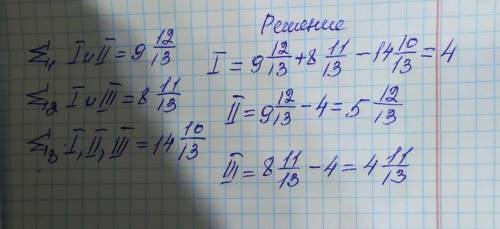 Σ₁ I и II = 9 12/13
Σ₂ I и III = 8 11/13
Σ₃ I, II, III = 14 10/13
Решение
I = 9 12/13 + 8 11/13 - 14 10/13 = 4
II = 9 12/13 - 4 = 5 12/13
III = 8 11/13 - 4 = 4 11/13